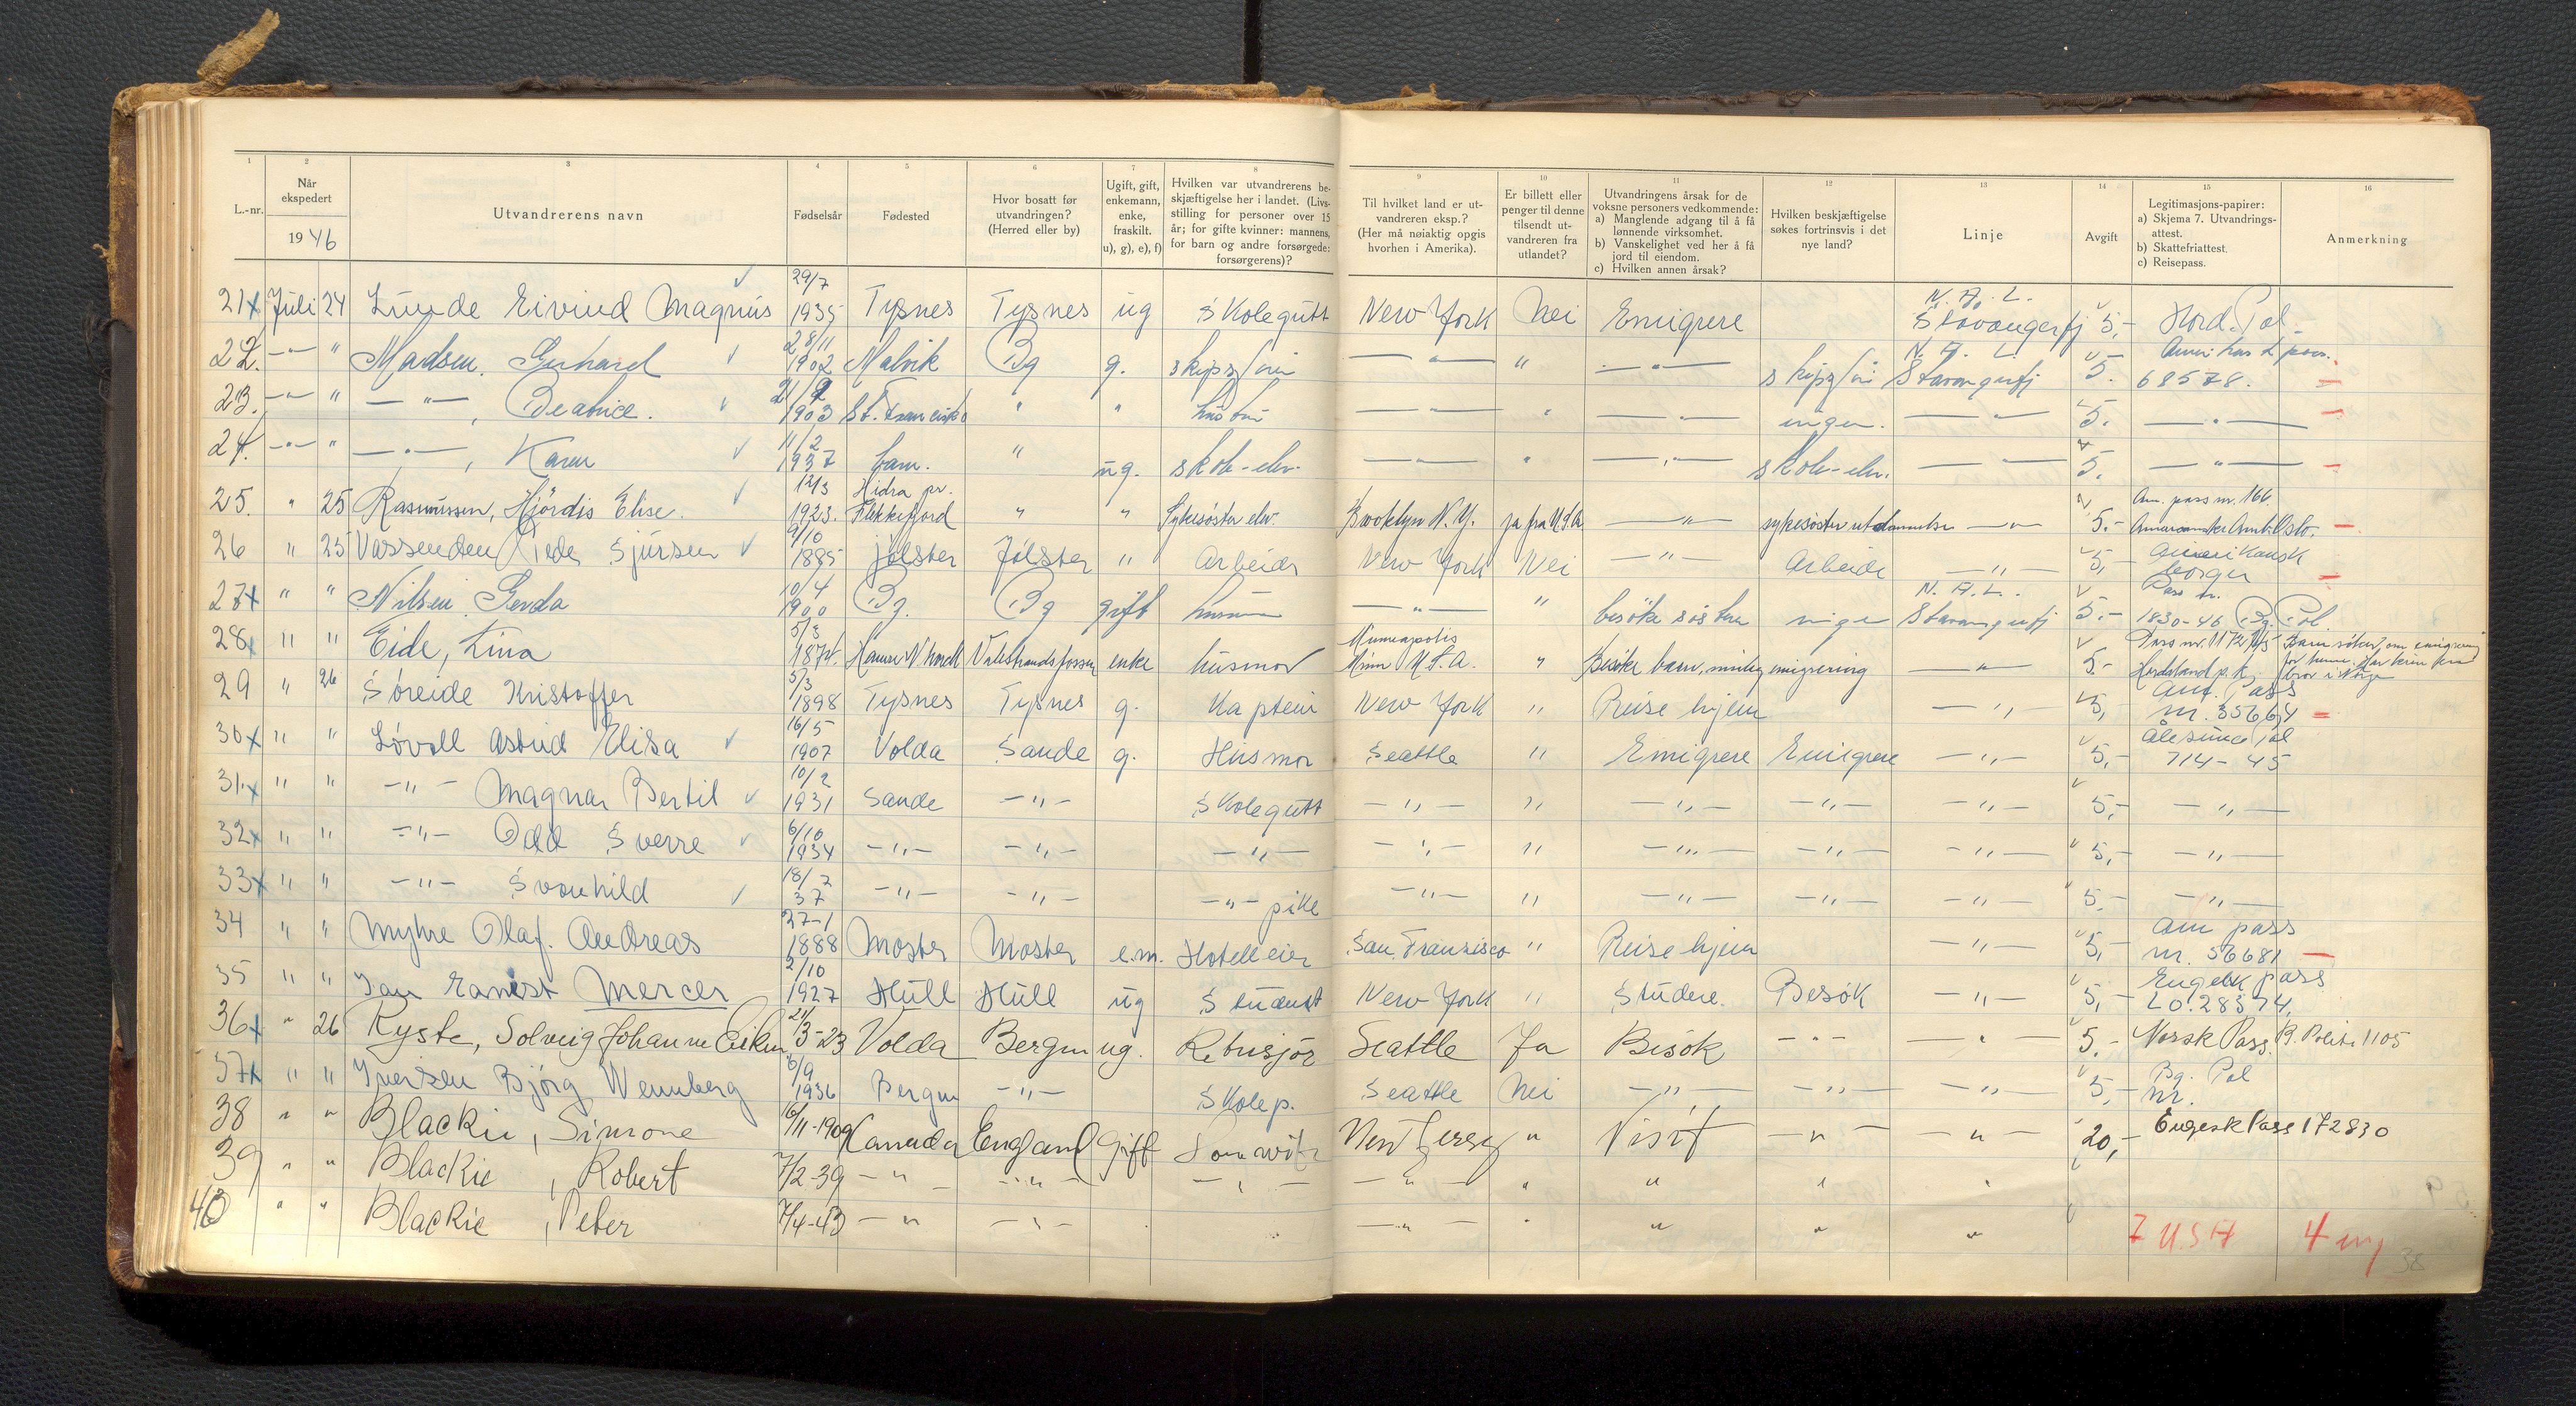 1 2 3 4 5 6 7 8 9 10 11 12 13 14 15 16
L.-nr. | Når ekspedert 1946 | Utvandrerens navn | Fødselsår | Fødested | Hvor bosatt før utvandringen? (Herred eller by) | Ugift, gift, enkemann, enke, fraskilt. u), g), e), f) | Hvilken var utvandrerens beskjæftigelse her i landet. (Livsstilling for personer over 15 år; for gifte kvinner: mannens, for barn og andre forsørgede: forsørgerens)? | Til hvilket land er utvandreren eksp.? (Her må nøiaktig opgis hvorhen i Amerika). | Er billett eller penger til denne tilsendt utvandreren fra utlandet? | Utvandringens årsak for de voksne personers vedkommende: a) Manglende adgang til å få lønnende virksomhet. b) Vanskelighet ved her å få jord til eiendom. c) Hvilken annen årsak? | Hvilken beskjæftigelse søkes fortrinsvis i det nye land? | Linje | Avgift | Legitimasjons-papirer: a) Skjema 7. Utvandringsattest. b) Skattefriattest. c) Reisepass. | Anmerkning
21x Juli 24 Lunde Eivind Magnus ✓ 29/7 1935 Tysnes Tysnes ug Skolegutt New York Nei Emigrere N. A. L. Stavangerfj 5,- Hord. Pol.
22. -"- " Madsen, Gerhard ✓ 28/11 1902 Malvik Bg g. -"- " -"- N. A. L. Stavangerfj 5.- 68578.
23. -"- " -"-, Beatrice. ✓ 1903 " " -"- " -"- ingen. -"- 5. -"-
24. -"- " -"-, Karen ✓ 11/2 1937 ug. skole-elev. -"- " -"- skole-elev. -"- 5. -"-
25. " 25 Rasmussen, Hjördis Elise. ✓ 12/3 1923. Hidra pr. Flekkefjord " " Sykesøster elev. Brooklyn N.Y. ja fra U.S.A -"- sykesøster utdannelse -"- 5.- Am. pass nr. 166 Amb. Oslo.
26 " 25 Vassenden Peder Sjursen ✓ 9/10 1885 Jølster Jølster " Arbeider New York Nei -"- Arbeide -"- 5,- Amerikansk borger
27x " " Nilsen Gerda 10/4 1900 Bg. Bg gift husmor -"- " besøke søster ingen N. A. L. Stavangerfj 5.- Pass nr. 1830-46 Bg. Pol.
28x " " Eide, Lina 5/3 1874. Valestrandsfossen enke husmor Minneapolis Minn U.S.A. " Besøke barn, mulig emigrering -"- 5.- Hordaland p.k.
29 " 26 Søreide Kristoffer 5/3 1898 Tysnes Tysnes g. Kaptein New York " Reise hjem -"- 5,- Am. Pass nr. 35664
30x " " Løvoll Astrid Elisa ✓ 16/5 1907 Volda Sande g. Husmor Seattle " Emigrere Emigrere -"- 5,- Ålesund Pol 714-45
31x " " -"- Magnar Bertil ✓ 10/2 1931 Sande -"- Skolegutt -"- " -"- -"- -"- 5,- -"-
32x " " -"- Odd Sverre ✓ 6/10 1934 -"- -"- -"- -"- " -"- -"- -"- 5,- -"-
33x " " -"- Svanhild ✓ 18/7 37 -"- -"- -"- pike -"- " -"- -"- -"- 5,- -"-
34 " " Myhre Olaf. Andreas 27-1 1888 Moster Moster e.m. Hotelleier San Franzisco " Reise hjem -"- 5,- Am pass nr. 56681
35 " " Ian Ernest Mercer 2/10 1927 Hull Hull ug Student New York " Studere. Besøk -"- 5,- Engelsk pass LO.28574.
36x " 26 Ryste, Solveig Johanne 21/3-23 Volda Bergen ug. Seattle Ja Besøk -"- -"- 5.- Norsk Pass. B. Politi 1105
37x " " Iversen Bjørg Wennberg 6/9 1936 Bergen -"- Skolep. Seattle Nei -"- -"- -"- 5,- Bg. Pol nr.
38 " " Blackie, Simone 16/11-1909 Kanada England Gift New Jersey " Visit -"- -"- 20,- Engesk Pass 172830
39 " " Blackie, Robert 7/2-39 -"- -"- -"- -"- " " " "
40 " " Blackie, Peter 7/4-43 -"- -"- -"- " " " "
7 USA 4 eng
38